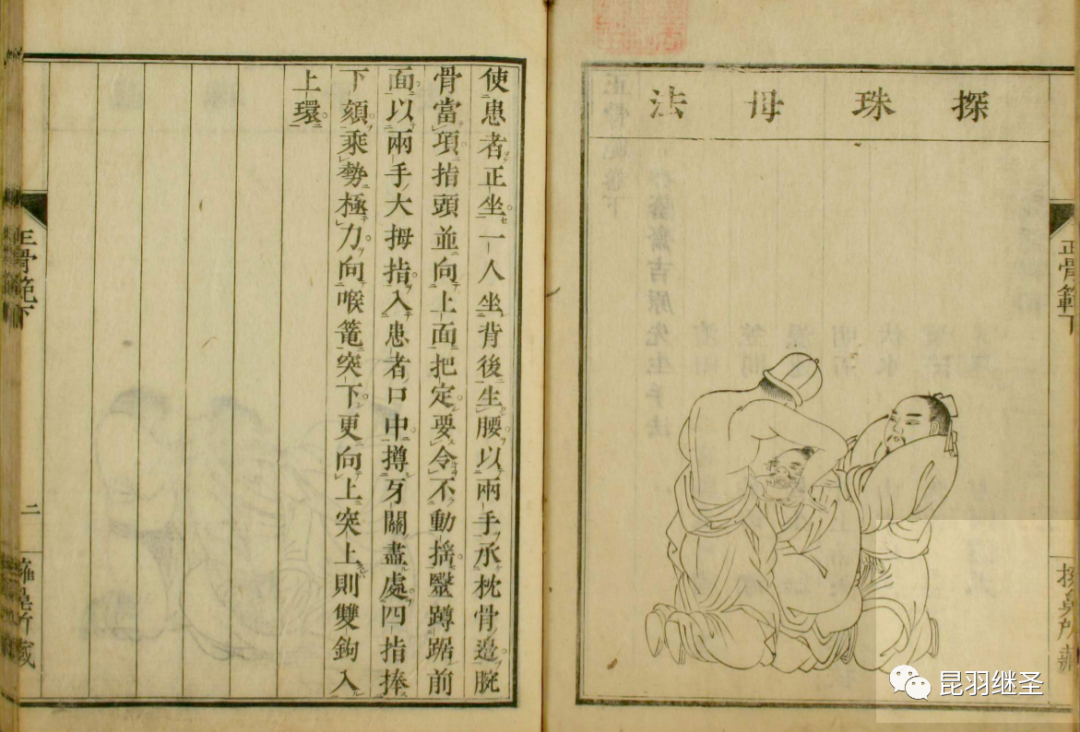 探珠母法
正骨範下
使患者正坐一人坐背後生腰以兩手承枕骨邊腕
骨當項指頭並向上面把定要令不動搖毉蹲踞前
面以兩手大拇指入患者口中撙牙關盡處四指捧
下頦乘勢極力向喉篭突下更向上突上則雙鉤入
上環
正骨範下
二
昆羽继圣